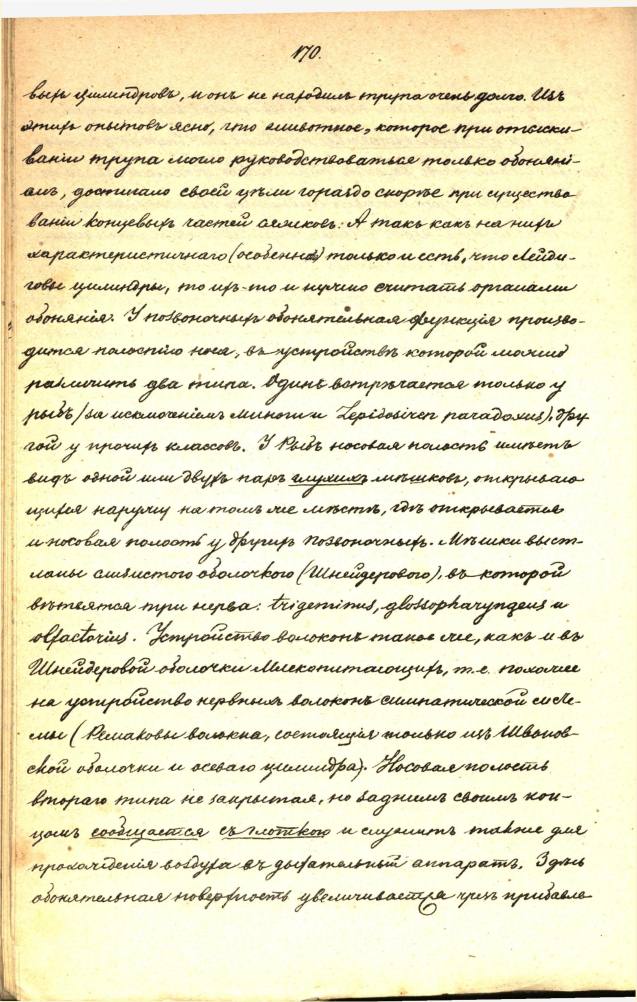 170.
выхъ цилиндровъ, и онъ не находилъ трупа очень долго. Изъ
этихъ опытовъ ясно, что животное, которое при отыски-
ваніи трупа могло руководствоваться только обоняні-
емъ, достигало своей цѣли гораздо скорѣе при существо
ваніи концевыхъ частей усиковъ. А такъ какъ на нихъ
характеристичнаго (особенно) только и есть, что Лейди-
говы цилиндры, то ихъ-то и нужно считать органами
обонянія. У позвоночныхъ обонятельная функція произво-
дится полостію носа, въ устройствѣ которой можно
различить два типа. Одинъ встрѣчается только у
рыбъ (за исключеніемъ миноги и Lepidosiren paradoxus), дру
гой у прочихъ классовъ. У Рыбъ носовая полость имѣетъ
видъ одной или двухъ паръ глухихъ мѣшковъ, открываю
щихся наружу на томъ же мѣстѣ, гдѣ открывается
и носовая полость у другихъ позвоночныхъ. Мѣшки выст-
ланы слизистого оболочкого (Шнейдерового), въ которой
вѣтвятся три нерва: trigeminus, glossopharyngeus и
olfactorius. Устройство волоконъ такое же, какъ и въ
Шнейдеровой оболочки Млекопитающихъ, т. е. похожее
на устройство нервныхъ волоконъ симпатической систе-
мы (Ремаковы волокна, состоящія только изъ Швановс-
ской оболочки и осеваго цилиндра). Носовая полость
втораго типа не закрытая, но заднимъ своимъ кон-
цомъ сообщается съ глоткою и служитъ также для
прохожденія воздуха въ дыхательный аппаратъ. Здѣсь
обонятельная поверхность увеличивается чрезъ прибавле